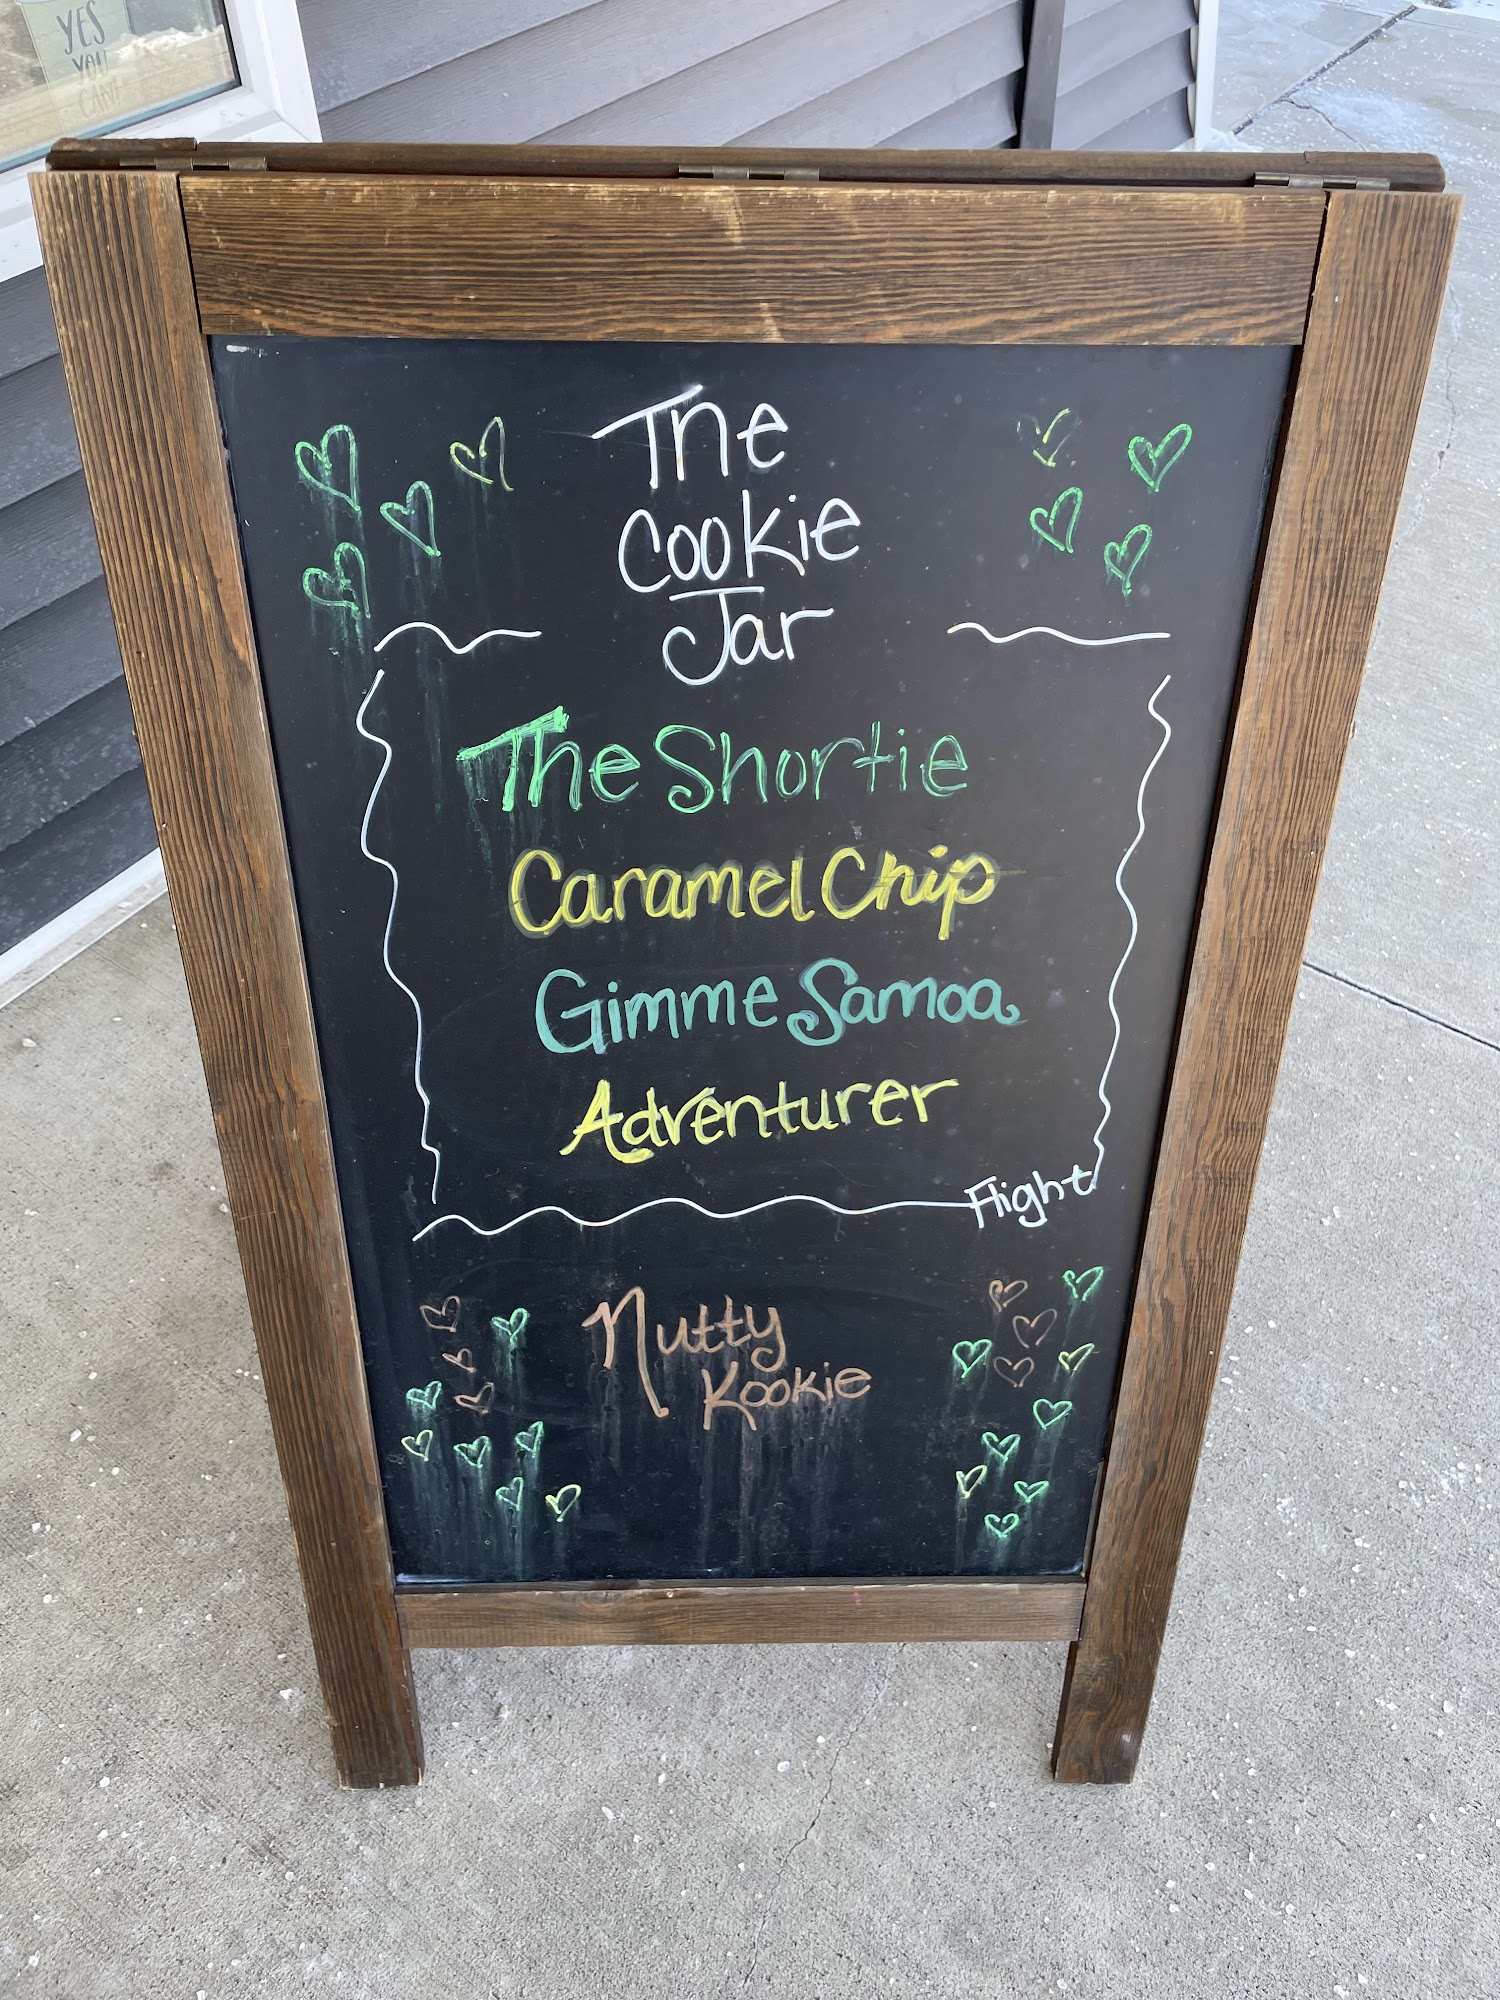 YES
YOU
CAN!
The
Cookie
Jar
The Shortie
Caramel Chip
Gimme Samoa
Adventurer
Flight
Nutty
Kookie